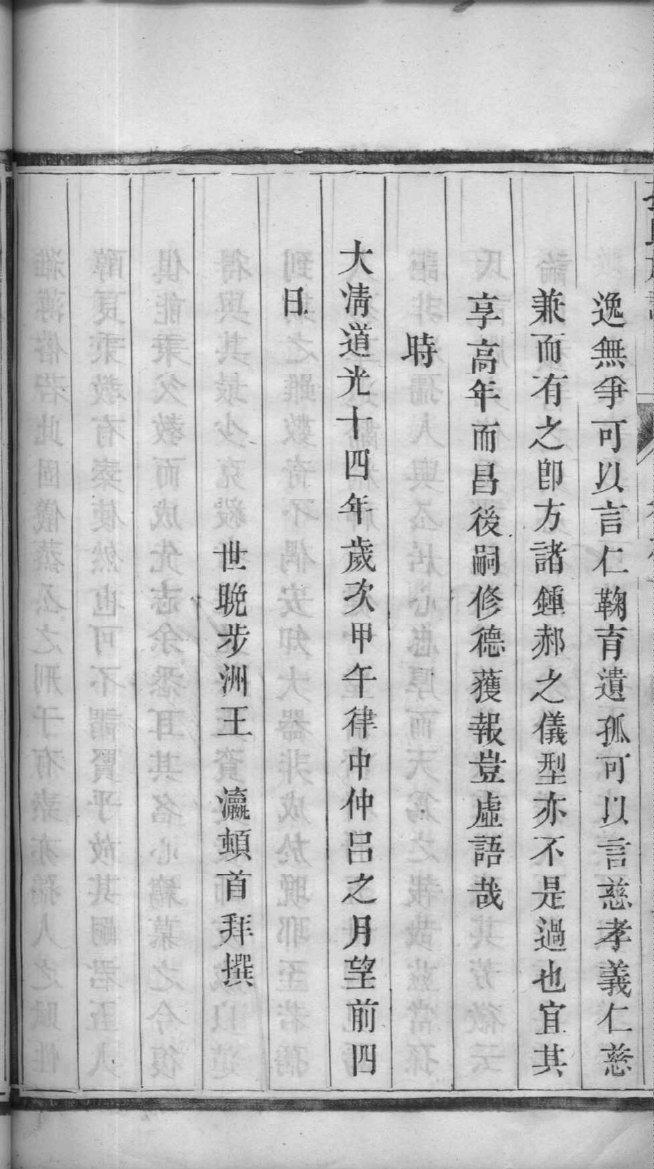 逸無爭可以言仁鞠育遺孤可以言慈孝義仁慈
兼而有之卽方諸鍾郝之儀型亦不是過也宜其
享高年而昌後嗣修德獲報豈虛語哉
時
大清道光十四年歲次甲午律中仲呂之月望前四
日
世晚步洲王　瀛頓首拜撰